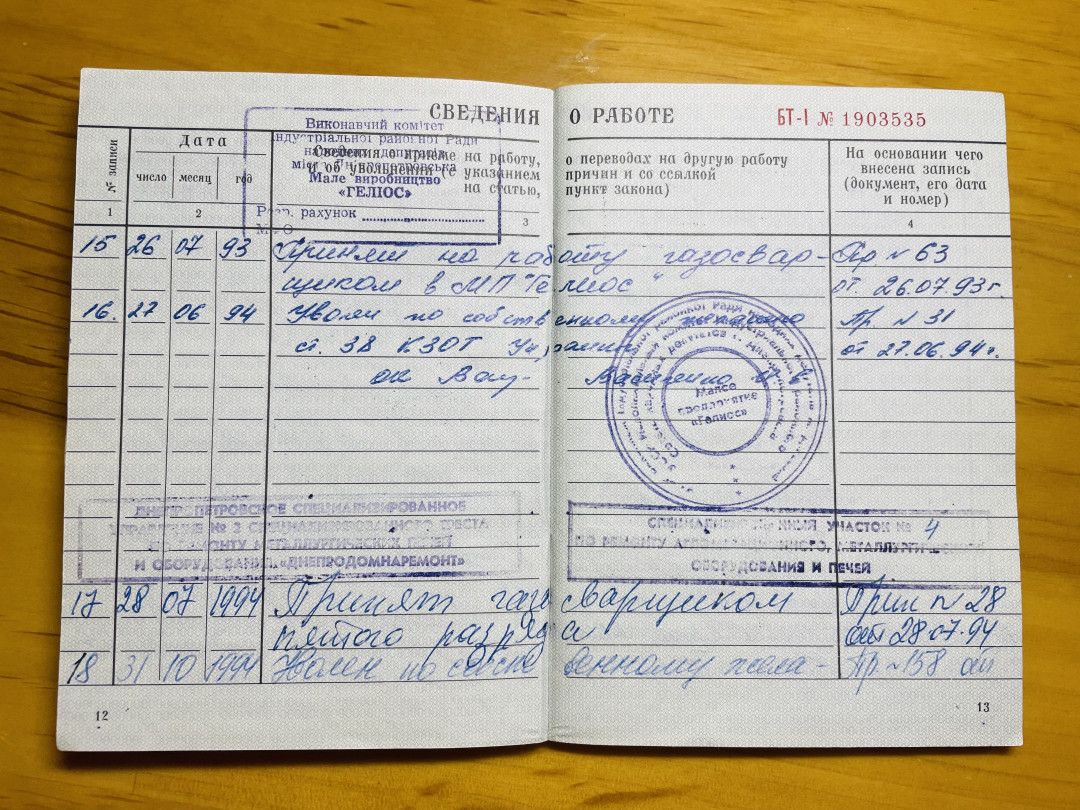 СВЕДЕНИЯ О РАБОТЕ
БТ-I № 1903535
Виконавчий комітет
Індустріальної районої Ради
народних депутатів
міста Дніпропетровська
Мале виробництво
«ГЕЛІОС»
Розр. рахунок
МФО
№ записи
Дата
число месяц год
Сведения о приеме на работу, о переводах на другую работу
и об увольнении (с указанием причин и со ссылкой
на статью, пункт закона)
На основании чего
внесена запись
(документ, его дата
и номер)
1 2 3 4
15 26 07 93 Принят на работу газосвар- Пр. № 63
щиком в МП "Гелиос" от 26.07.93г.
16. 27 06 94 Уволен по собственному желанию Пр № 31
ст. 38 КЗОТ Украины от 27.06.94г.
Малое
предприятие
«Гелиос»
ДНЕПРОПЕТРОВСКОЕ СПЕЦИАЛИЗИРОВАННОЕ
УПРАВЛЕНИЕ № 3 СПЕЦИАЛИЗИРОВАННОГО ТРЕСТА
ПО РЕМОНТУ МЕТАЛЛУРГИЧЕСКИХ ПЕЧЕЙ
И ОБОРУДОВАНИЯ «ДНЕПРОДОМНАРЕМОНТ»
СПЕЦИАЛИЗИРОВАННЫЙ УЧАСТОК № 4
ПО РЕМОНТУ МЕТАЛЛУРГИЧЕСКОГО
ОБОРУДОВАНИЯ И ПЕЧЕЙ
17 28 07 1994 Принят газосварщиком Прик № 28
пятого разряда от 28.07.94
18 31 10 1994 Уволен по собственному жела- Пр. № 158 от
12
13